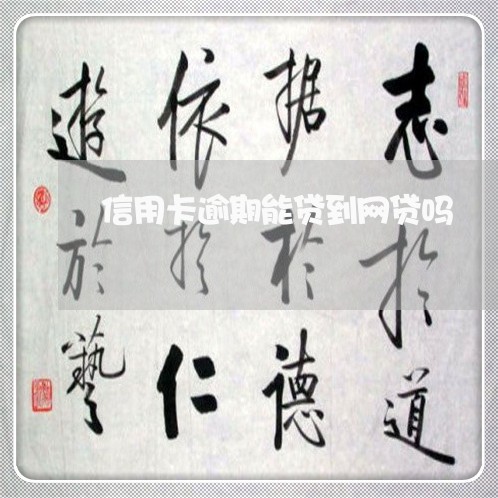 志於道
据於德
依於仁
遊於藝
信用卡逾期能贷到网贷吗